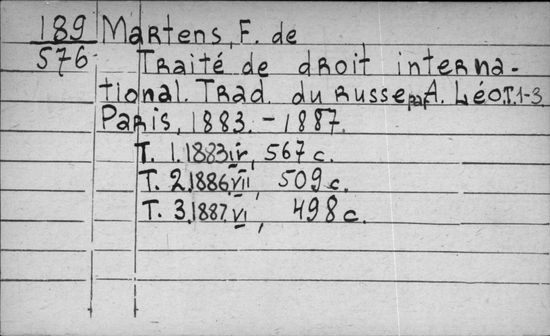 189 Martens, F. de
576 Traité de droit interna-
tional. Trad. du russe par A. Léo. T. 1-3.
Paris, 1883. - 1887.
T. 1. 1883. IV, 567 c.
T. 2. 1886. VII, 509 c.
T. 3. 1887. VI, 498 c.